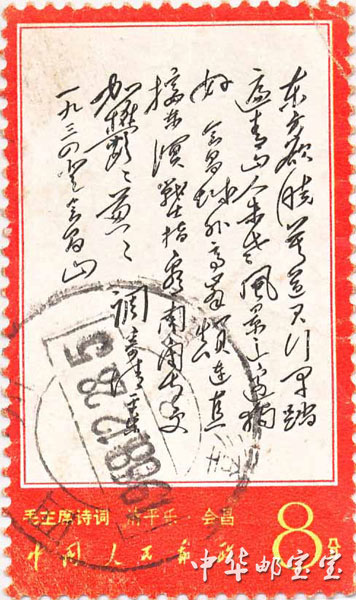 东方欲晓莫道君行早踏
遍青山人未老风景这边独
好会昌城外高峰颠连直
接东溟战士指看南粤更
加郁々葱々 调寄清平乐
一九三四登会昌山
1968.12.28.5
毛主席诗词 清平乐·会昌
8分
中国人民邮政
中华邮宝宝